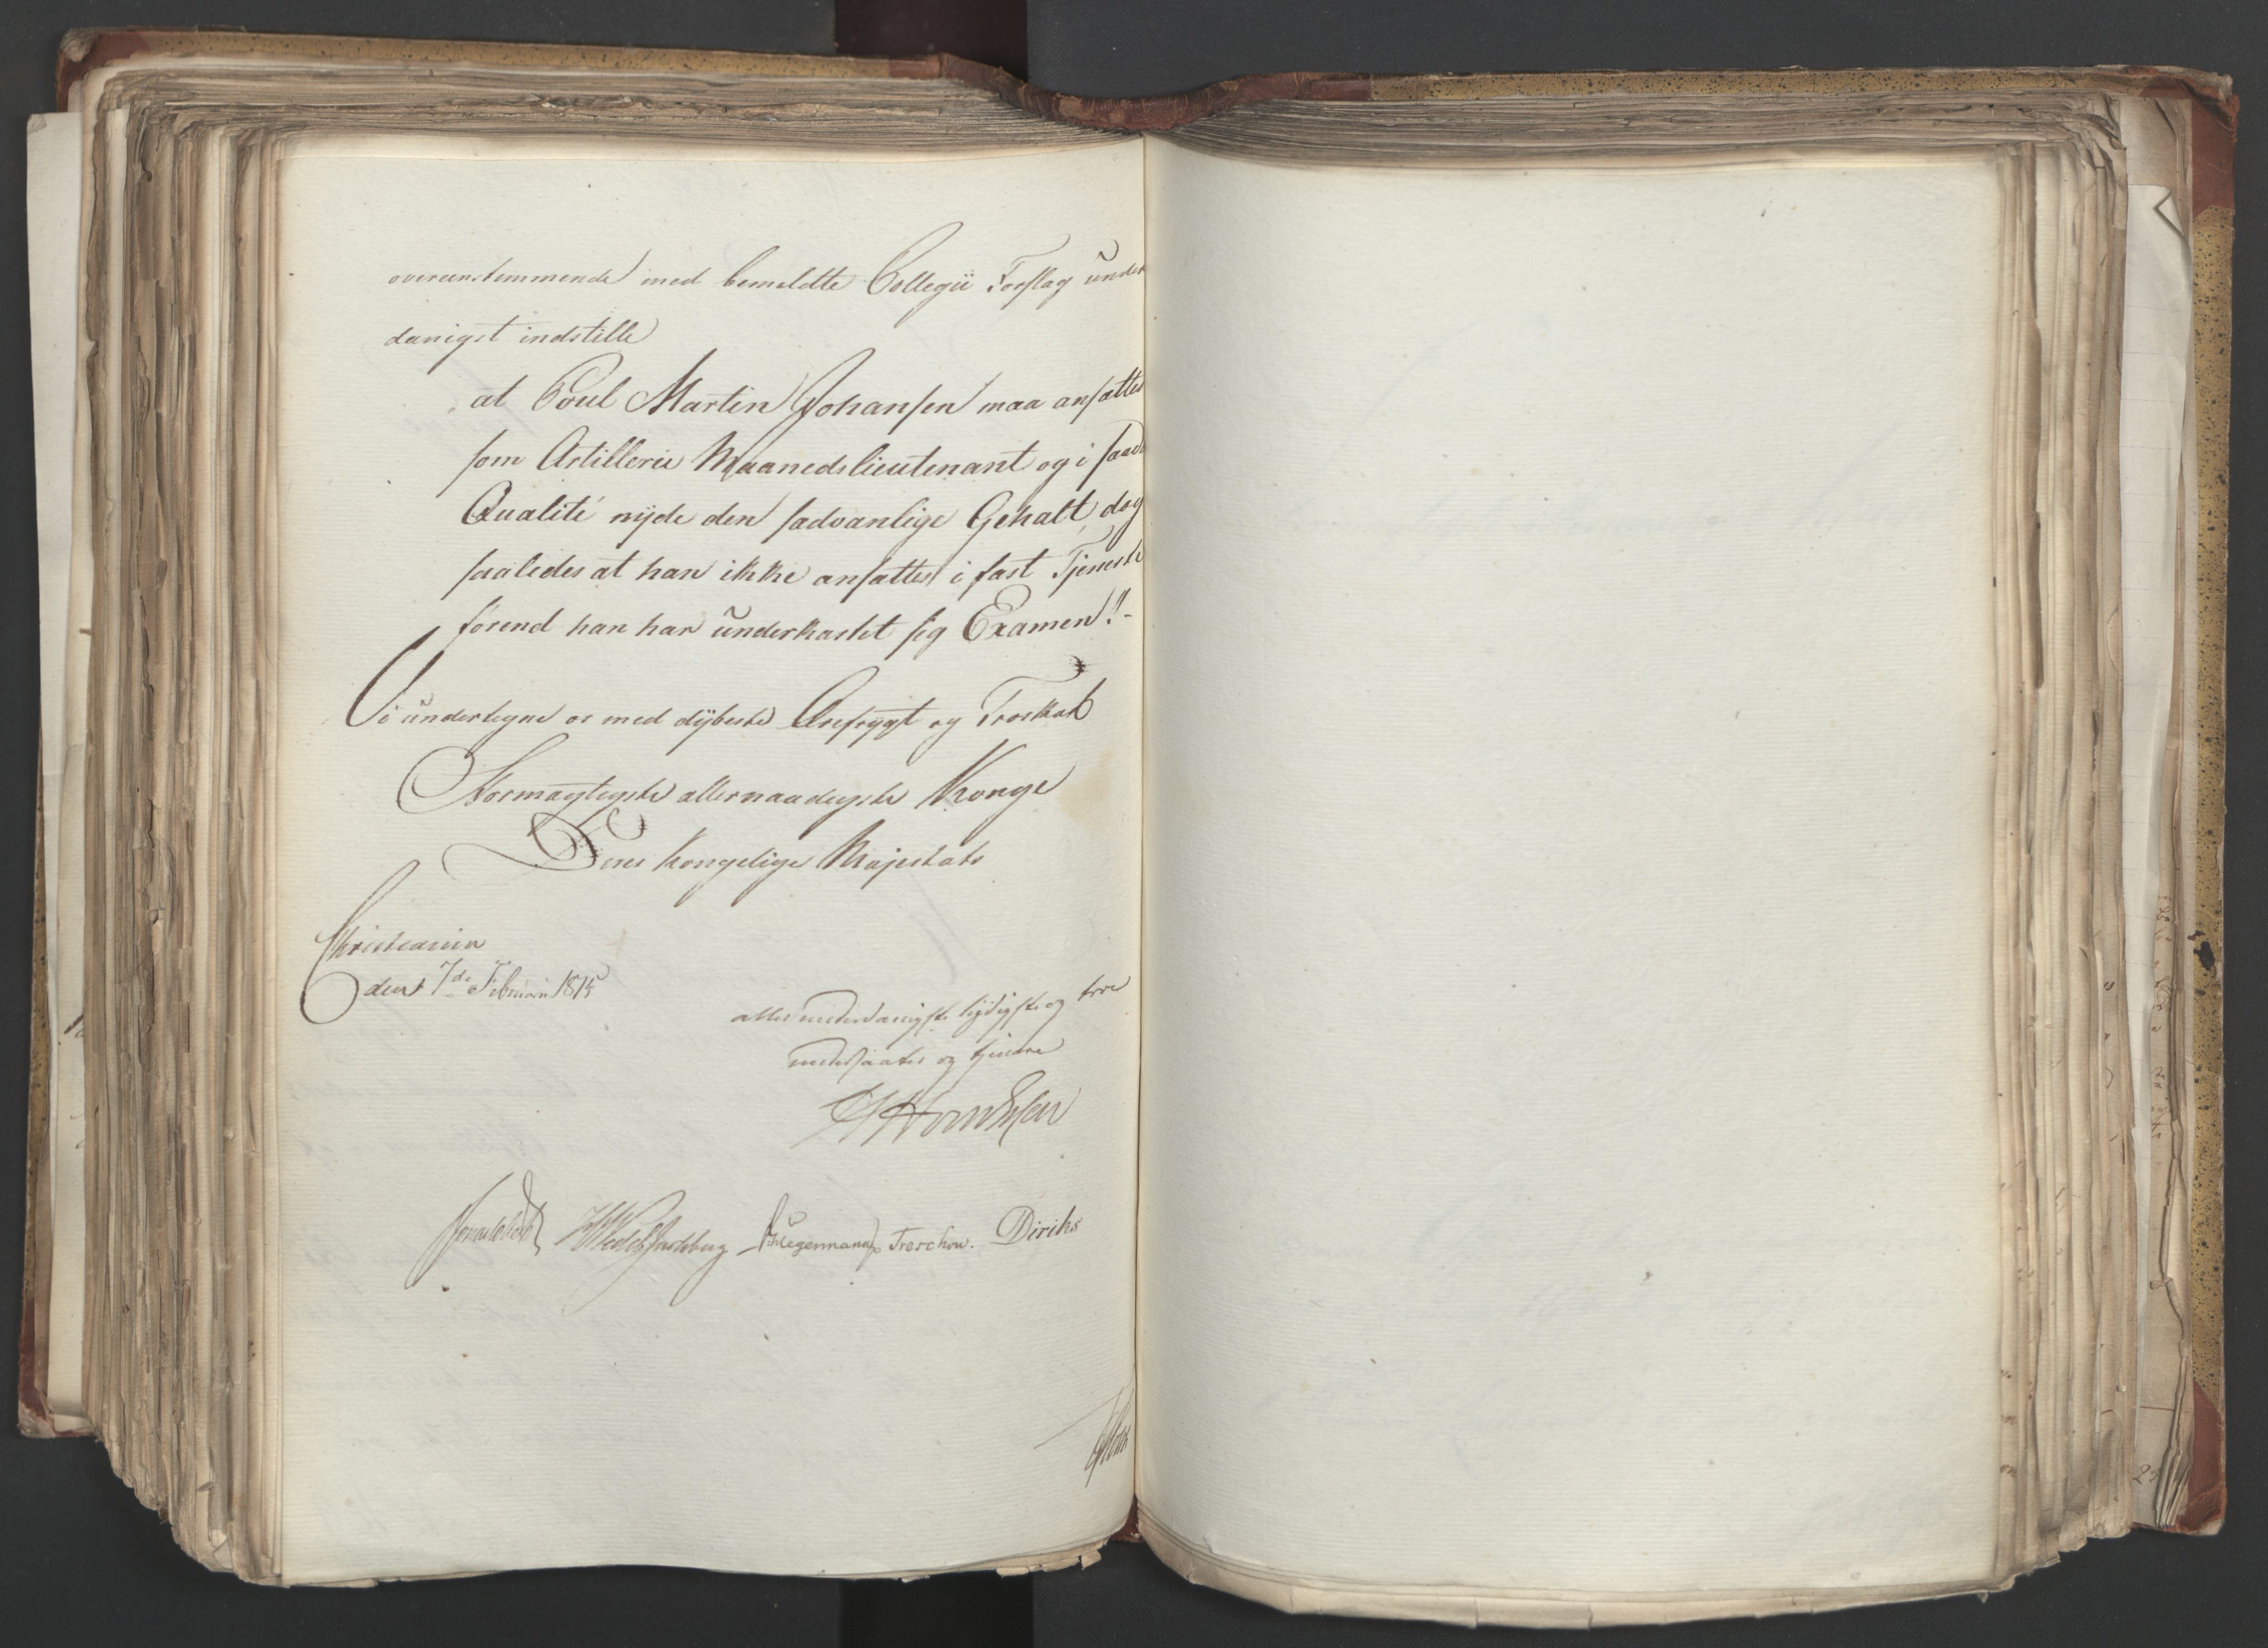 overeenstemmende med bemeldte Collegii Forslag under
danigst indstille
at Poul Martin Johansen maa ansættes
som Artillerie Maanedslieutenant og i saad
Qualité nyde den sædvanlige Gehalt, dog
saaledes at han ikke ansættes i fast Tjeneste
førend han har underkastet sig Examen!!-
Vi undertegne os med dybeste Ærefrygt og Troskab
Stormægtigste allernaadigste Konge
Deres Kongelige Majestæts
Christiania
den 7de Februari 1815
allerunderdanigste lydigste og troe
undersaatter og tjenere
Sommerhielm HWedelJarlsberg Hegermann Treschow. Diriks